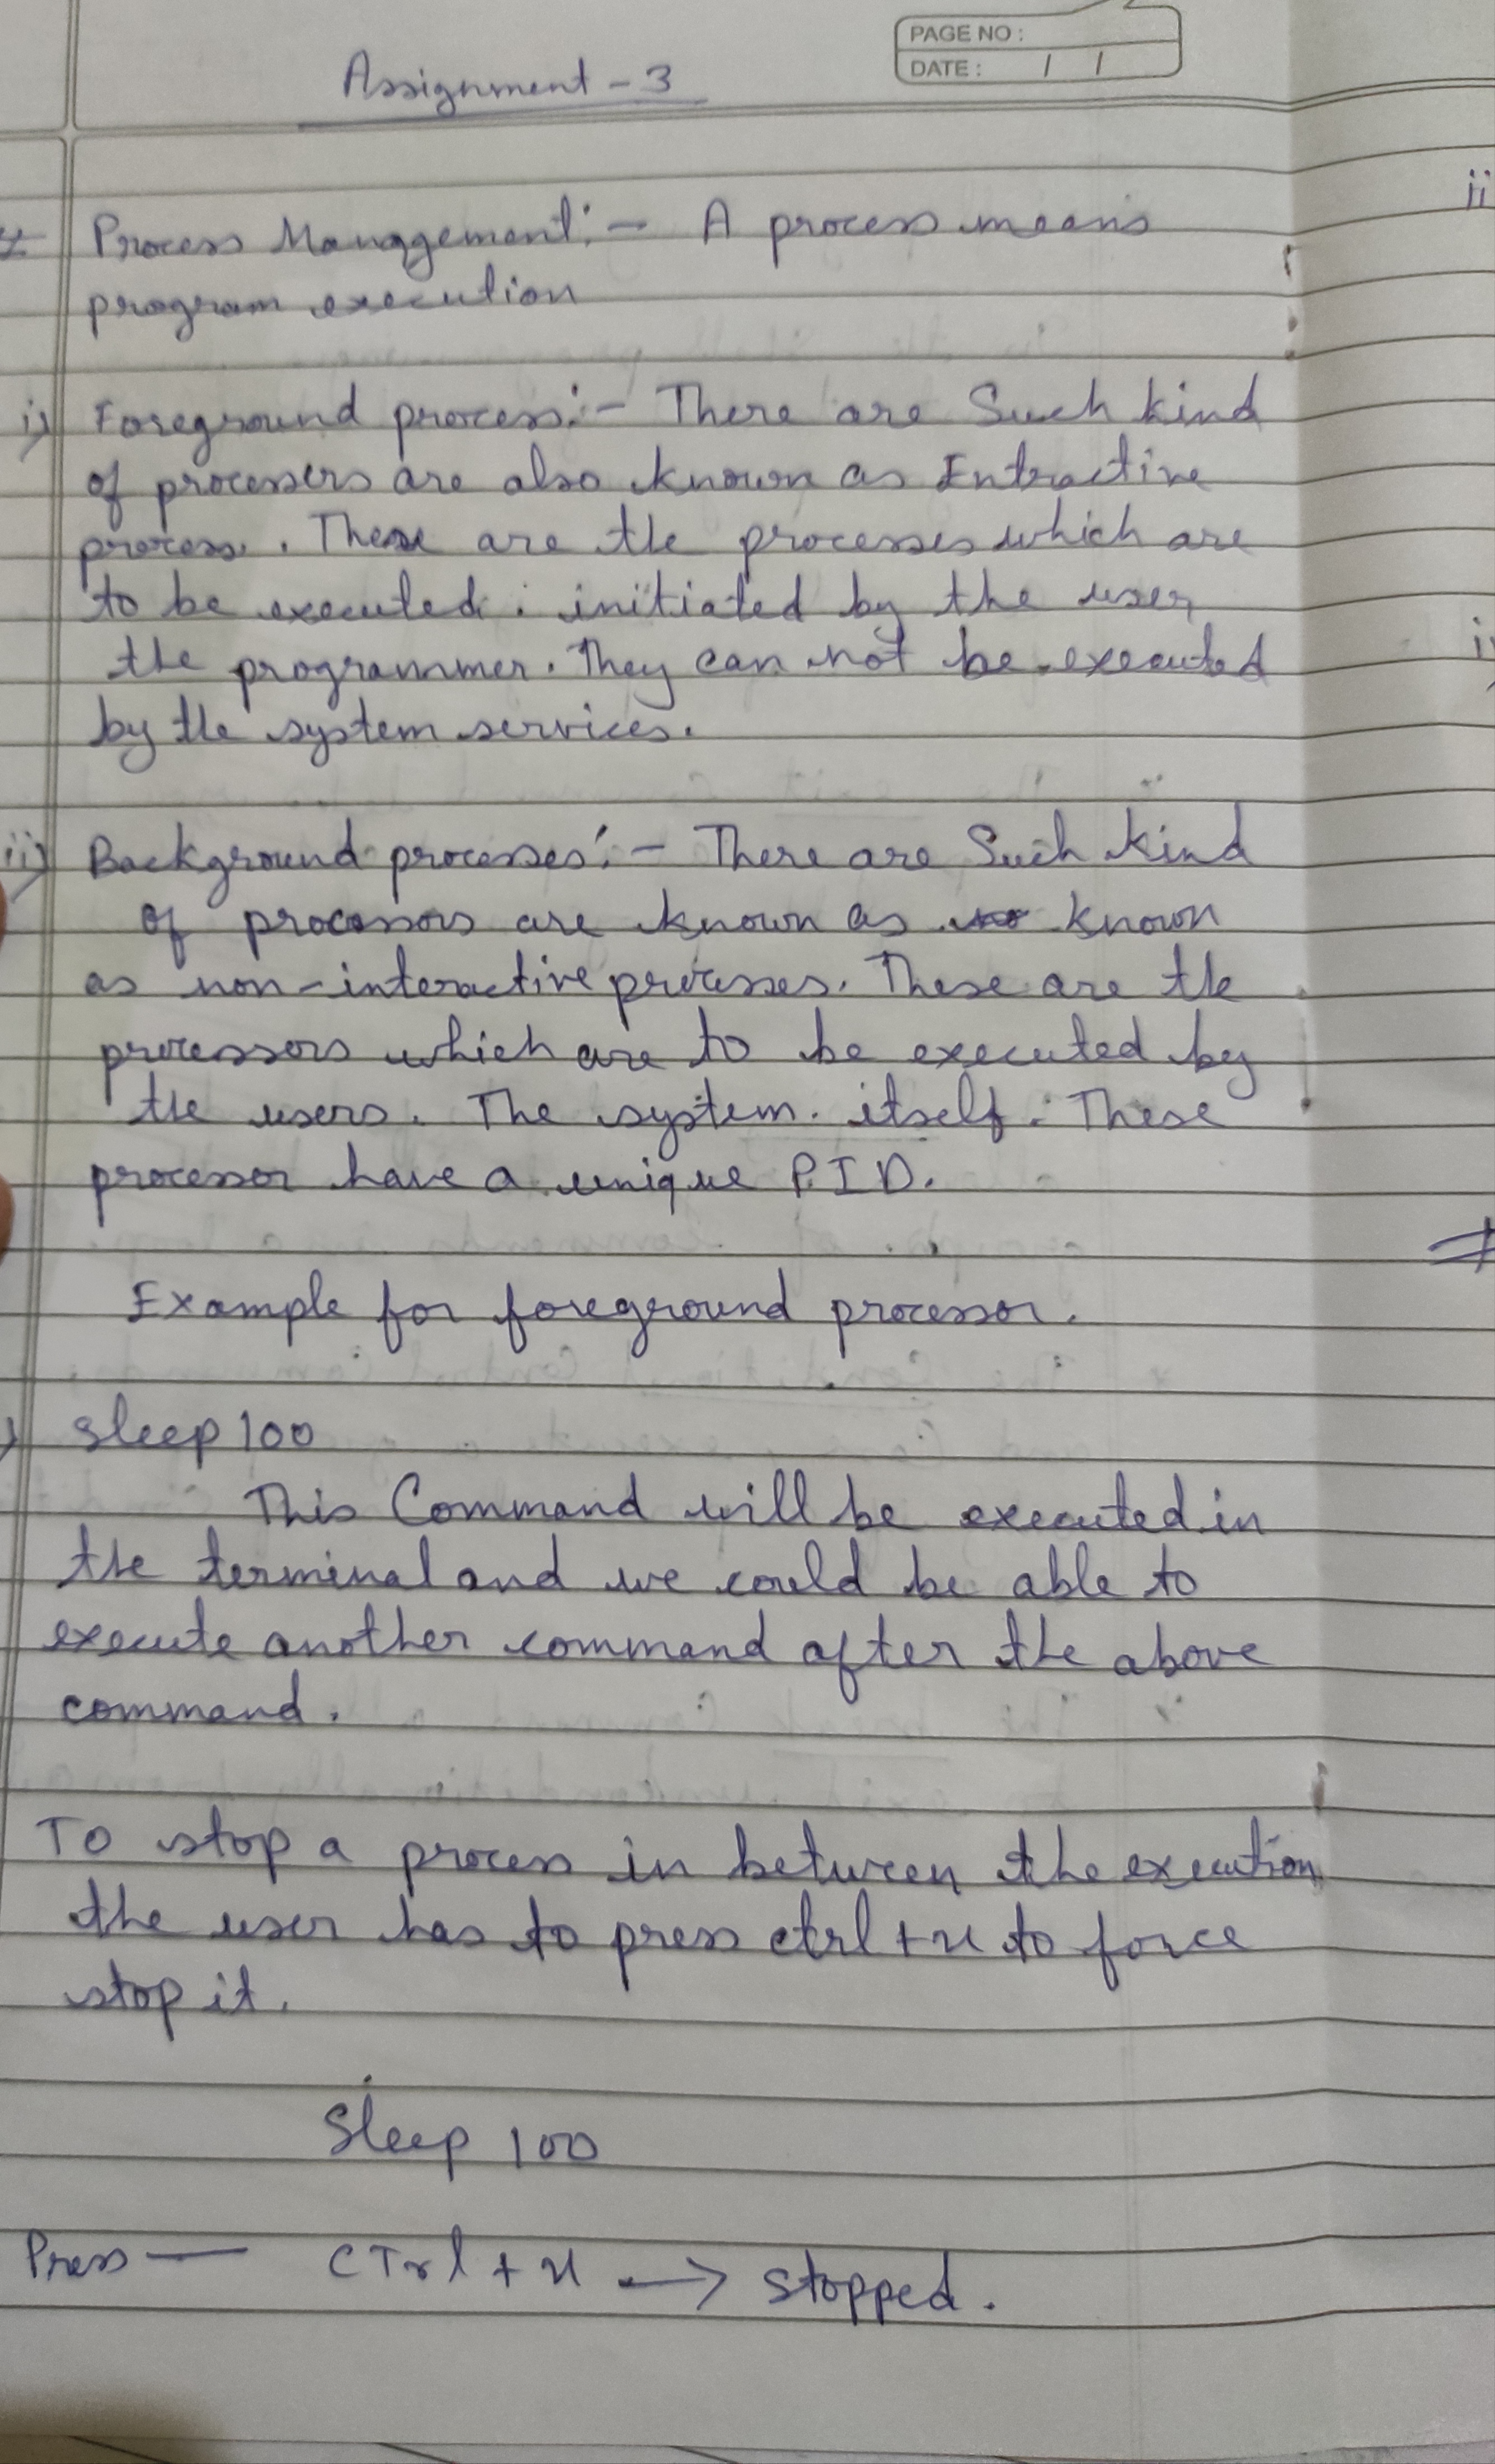 PAGE NO :
DATE : / /
Assignment - 3
Process Management :- A process means
program execution
i) Foreground process :- There are Such kind
of processers are also known as Intractive
process. These are the processes which are
to be executed. initiated by the user
the programmer. They can not be executed
by the system services.
ii) Background processes :- There are Such kind
of processors are known as known
as non-interactive processes. These are the
processors which are to be executed by
the users. The system. itself. These
processor have a unique P.I.D.
Example for foreground processor.
sleep 100
This Command will be executed in
the terminal and we could be able to
execute another command after the above
command.
To stop a process in between the execution
the user has to press ctrl + x to force
stop it.
Sleep 100
Press — CTrl + x → stopped.
ii